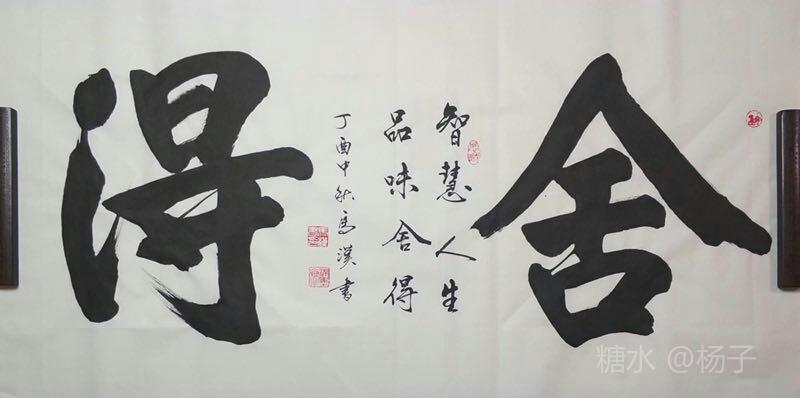 舍得
智慧人生
品味舍得
丁酉中秋马汉书
糖水 @杨子